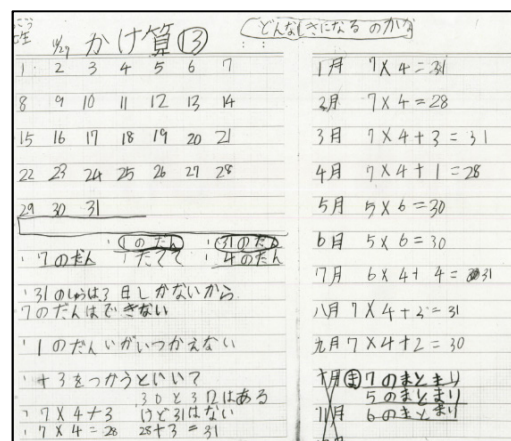 10/29 かけ算⑬
1 2 3 4 5 6 7
8 9 10 11 12 13 14
15 16 17 18 19 20 21
22 23 24 25 26 27 28
29 30 31
・7のだん ・1のだん ・31のだん
たてて ・4のだん
・31のしゅうは3日しかないから
7のだんはできない
・1のだんいがいつかえない
・+3をつかうといいて
・7×4+3 30と3はある
けど31はない
・7×4=28 28+3=31
どんなしきになるのかな
1月 7×4=31
2月 7×4=28
3月 7×4+3=31
4月 7×4+1=28
5月 5×6=30
6月 5×6=30
7月 6×4+4=31
八月 7×4+2=31
九月 7×4+2=30
十月 ㋮ 7のまとまり
5のまとまり
11月 6のまとまり